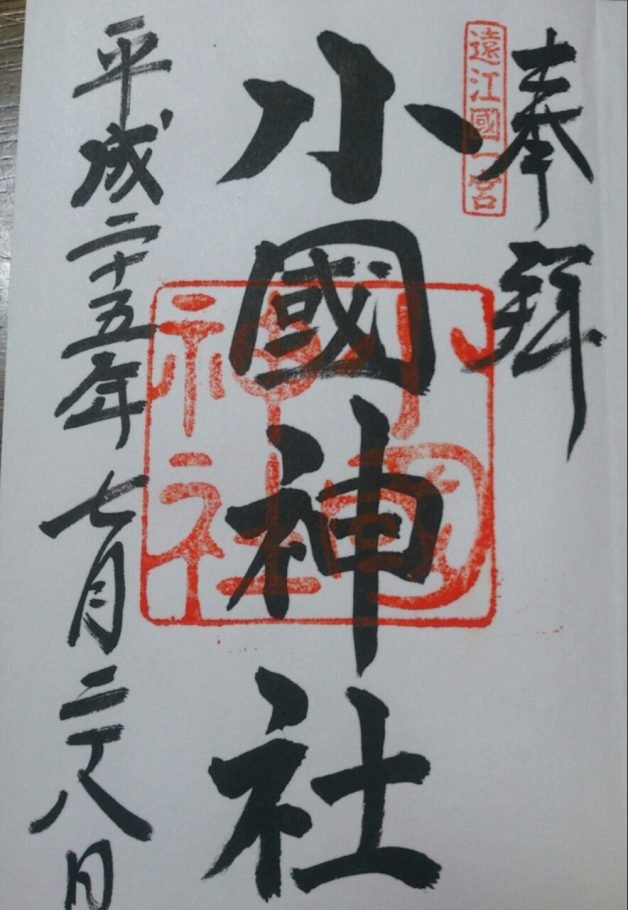 奉拝
遠江國一宮
小國神社
小國神社
平成二十五年七月二十八日